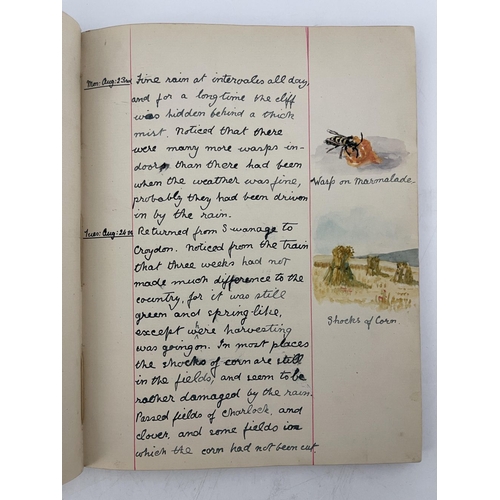 Mon: Aug: 23rd
Fine rain at intervals all day,
and for a long time the cliff
was hidden behind a thick
mist. Noticed that there
were many more wasps in-
doors than there had been
when the weather was fine,
probably they had been driven
in by the rain.
Tues: Aug: 24th
Returned from Swanage to
Croydon. Noticed from the train
that three weeks had not
made much difference to the
country, for it was still
green and spring-like,
except were harvesting
was going on. In most places
the shocks of corn are still
in the fields, and seem to be
rather damaged by the rain.
Passed fields of charlock, and
clover, and some fields in
which the corn had not been cut
Wasp on Marmalade.
Shocks of Corn.